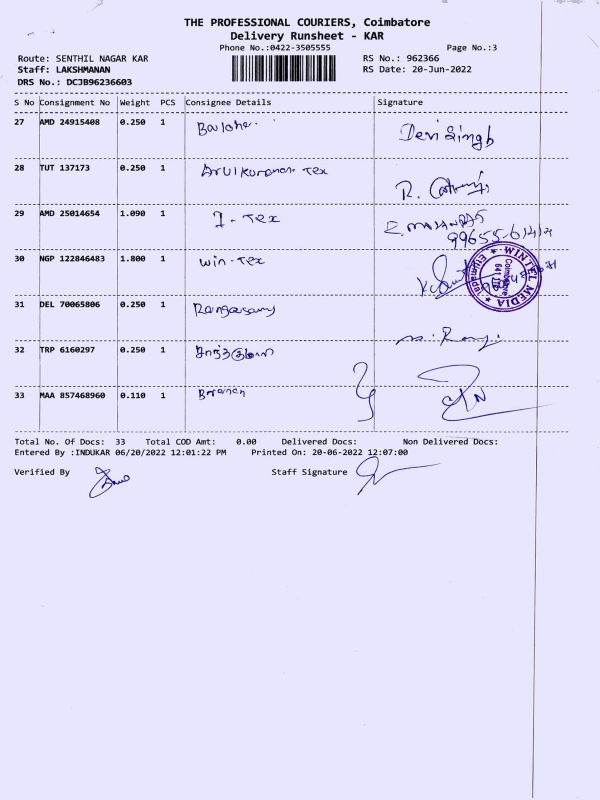 THE PROFESSIONAL COURIERS, Coimbatore
Delivery Runsheet - KAR
Phone No.:0422-3505555 Page No.:3
Route: SENTHIL NAGAR KAR RS No.: 962366
Staff: LAKSHMANAN RS Date: 20-Jun-2022
DRS No.: DCJB96236603
S No Consignment No Weight PCS Consignee Details Signature
27 AMD 24915408 0.250 1 Devi Singh
28 TUT 137173 0.250 1 Arulkumaran Tex R.
29 AMD 25014654 1.090 1 I-Tex
30 NGP 122846483 1.800 1 Win-Tex
WINTEL MEDIA
Coimbatore
31 DEL 70065806 0.250 1 Rangasamy
32 TRP 6160297 0.250 1
33 MAA 857468960 0.110 1
Total No. Of Docs: 33 Total COD Amt: 0.00 Delivered Docs: Non Delivered Docs:
Entered By :INDUKAR 06/20/2022 12:01:22 PM Printed On: 20-06-2022 12:07:00
Verified By Staff Signature